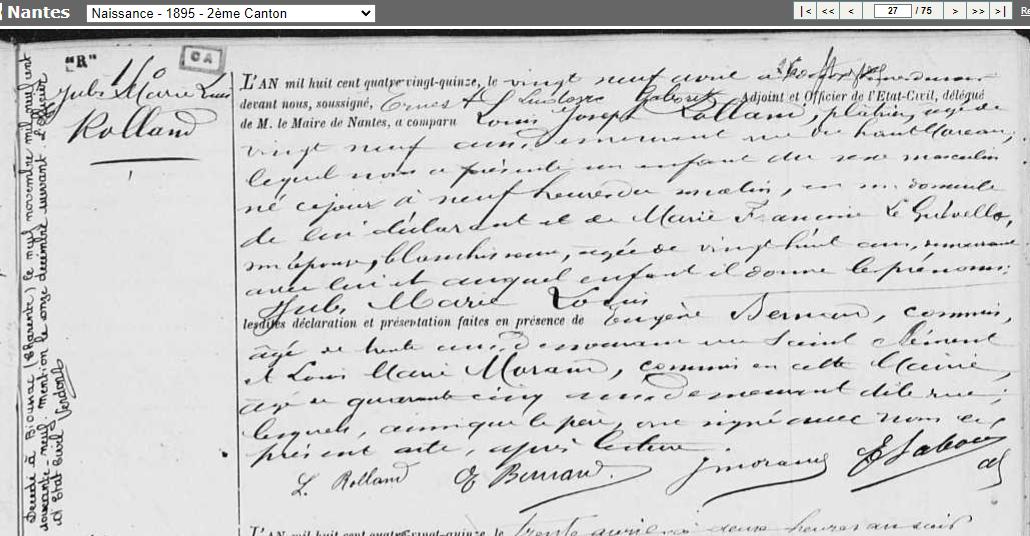 Nantes
Naissance - 1895 - 2ème Canton
|< << < 27 / 75 > >> >|
"R"
CA
Jules Marie Louis
Rolland
Décédé à Brossac (Charente) le neuf novembre mil neuf cent
soixante-neuf. Mention le onze décembre suivant. L'officier
d'Etat Civil
L'AN mil huit cent quatre-vingt-quinze, le vingt neuf avril à
devant nous, soussigné, Ernest Ludovic Adjoint et Officier de l'Etat-Civil, délégué
de M. le Maire de Nantes, a comparu Louis Joseph Rolland, plâtrier, âgé de
vingt neuf ans, demeurant rue du haut Moreau,
lequel nous a présenté un enfant du sexe masculin
né ce jour à neuf heures du matin, en son domicile
de lui déclarant et de Marie Françoise Le Guévello,
son épouse, blanchisseuse, âgée de vingt huit ans, demeurant
avec lui et auquel enfant il donne les prénoms:
Jules Marie Louis
lesdites déclaration et présentation faites en présence de Eugène Bernard, commis,
âgé de trente ans, demeurant rue Saint Clément
et Louis Marie Morand, commis en cette Mairie,
âgé de quarante cinq ans, demeurant dite rue,
lesquels, ainsi que le père, ont signé avec nous le
présent acte, après lecture.
L. Rolland E Bernard J Morand
L'AN mil huit cent quatre-vingt-quinze, le trente avril à deux heures du soir